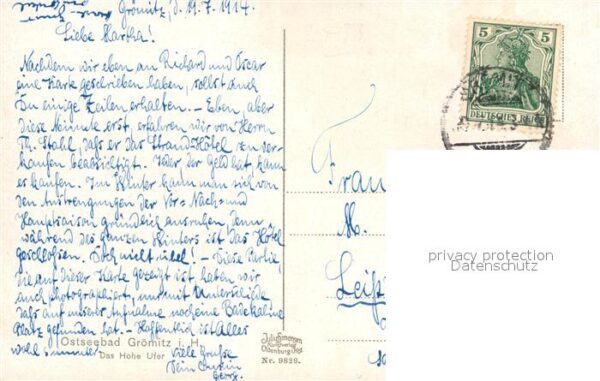 Grömitz, d. 19.7.1914.
Liebe Martha!
Nachdem wir eben an Richard und Oscar
eine Karte geschrieben haben, sollst auch
Du einige Zeilen erhalten. - Eben, aber
diese Minute erst, erfahren wir von Herrn
Th. Stahl, daß er das Strand-Hôtel zu ver-
kaufen beabsichtigt. Jeder der Geld hat, kann
es kaufen. Im Winter kann man sich von
den Anstrengungen der Vor- Nach- und
Hauptsaison gründlich ausruhen, denn
während des ganzen Winters ist das Hôtel
geschlossen. Doch nicht übel! - Diese Partie,
die auf dieser Karte gezeigt ist, haben wir
auch photographiert, nur mit Unterschiede,
daß auf unserer Aufnahme noch eine Badekabine
Platz gefunden hat. - Hoffentlich ist Alles
wohl u. munter.
Viele Grüße
Dein Cousin
Georg.
Ostseebad Grömitz i. H.
Das Hohe Ufer
Julius Simonsen
Kunstverlag
Oldenburg i. Holst
Nr. 9829.
5 5
DEUTSCHES REICH
Frau
M.
Leipz
privacy protection
Datenschutz